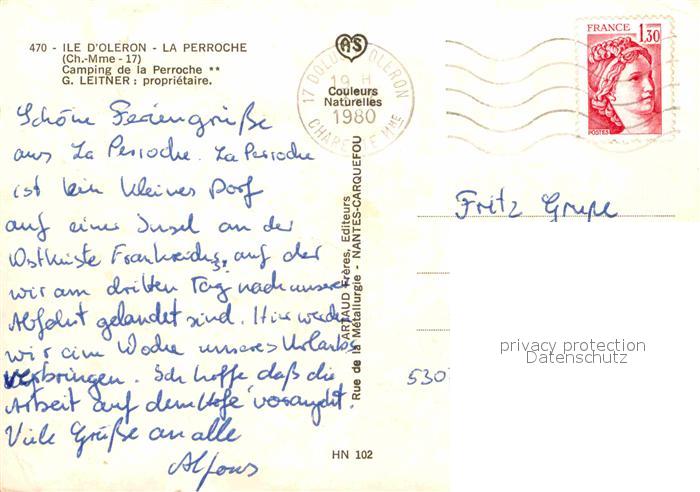 470 - ILE D'OLERON - LA PERROCHE
(Ch.-Mme - 17)
Camping de la Perroche **
G. LEITNER : propriétaire.
AS
Couleurs
Naturelles
17 DOLUS OLERON
19 H
1980
CHARENTE MME
FRANCE
1,30
POSTES
Schöne Feriengrüße
aus La Perroche. La Perroche
ist ein kleines Dorf
auf einer Insel an der
Westküste Frankreichs, auf der
wir am dritten Tag nach unserer
Abfahrt gelandet sind. Hier werden
wir eine Woche unseres Urlaubs
verbringen. Ich hoffe daß die
Arbeit auf dem Hofe vorangeht.
Viele Grüße an alle
Alfons
ARTAUD Frères, Editeurs
Rue de la Métallurgie - NANTES-CARQUEFOU
HN 102
Fritz Grupe
530
privacy protection
Datenschutz